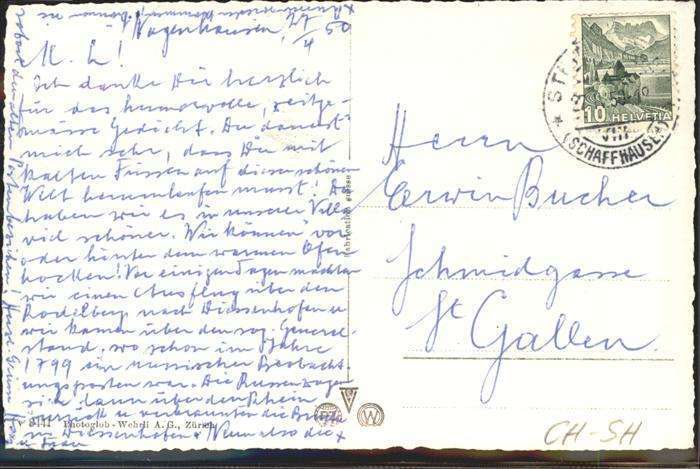 Wagenhausen, 27/4 50
M. L!
Ich danke Dir herzlich
für das humorvolle, zeitge-
mässe Gedicht. Du dauerst
mich sehr, dass Du mit
kalten Füssen auf dieser schönen
Welt herumlaufen musst! Da
haben wir es in unserer Vill
viel schöner. Wir können vor
oder hinter dem warmen Ofen
hocken! Vor einigen Tagen machten
wir einen Ausflug über den
Rodelberg nach Diessenhofen u.
wir kamen über den sog. General-
stand, wo schon im Jahre
1799 ein russischer Beobacht-
ungsposten war. Die Russen zogen
sich dann über den Rhein
zurück u. verbrannten die Brücke
in Diessenhofen. Wenn also die
Herrn
Erwin Bucher
Schmidgasse
St. Gallen
10 HELVETIA
(SCHAFFHAUSEN)
Fabrication suisse
Photoglob-Wehrli A. G., Zürich
CH-SH